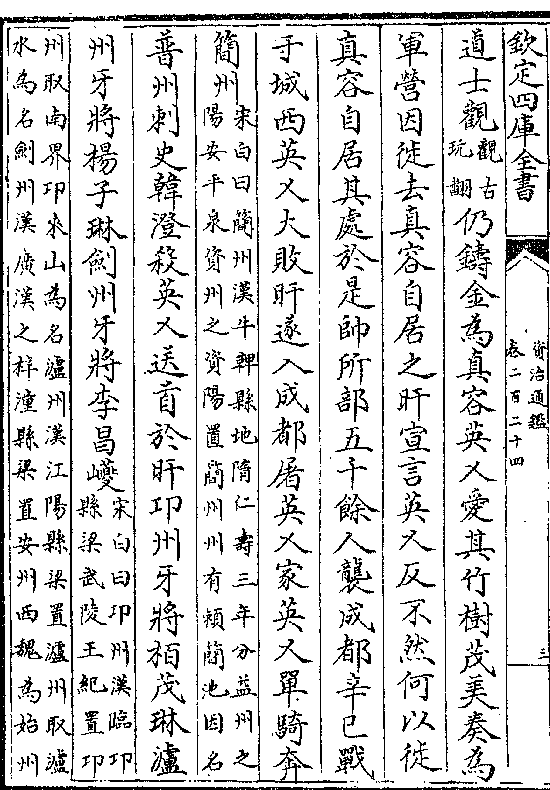 欽定四庫全書
資治通鑑
卷二百二十四
三
道士觀觀古玩翻仍鑄金為真容英乂愛其竹樹茂美奏為
軍營因徙去真容自居之旰宣言英乂反不然何以徙
真容自居其處於是帥所部五千餘人襲成都辛巳戰
于城西英乂大敗旰遂入成都屠英乂家英乂單騎奔
簡州宋白曰簡州漢牛鞞縣地隋仁壽三年分益州之陽安平泉資州之資陽置簡州州有頼簡池因名
普州刺史韓澄殺英乂送首於旰卭州牙將栢茂琳瀘
州牙將楊子琳劍州牙將李昌巙宋白曰卭州漢臨卭縣梁武陵王紀置卭
州取南界卭來山為名瀘州漢江陽縣梁置瀘州取瀘
水為名劍州漢廣漢之梓潼縣梁置安州西魏為始州